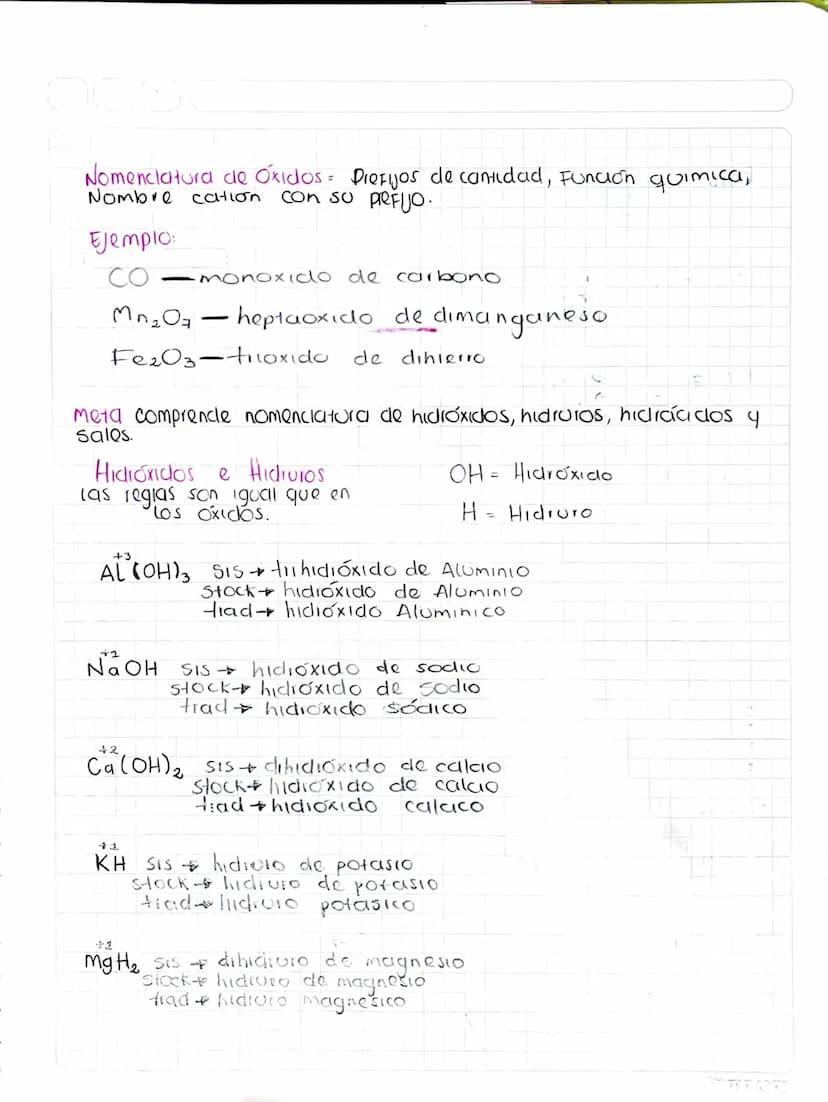 Nomenclatura de Óxidos = Prefijos de cantidad, Función química,
Nombre cation con su prefijo.
Ejemplo:
CO — monoxido de carbono
Mn₂O₇ — heptaoxido de dimanganeso
Fe₂O₃ — trioxido de dihierro
Meta comprende nomenclatura de hidróxidos, hidruros, hidrácidos y
sales.
Hidróxidos e Hidruros
OH = Hidróxido
las reglas son igual que en
los óxidos.
H = Hidruro
+3
AL(OH)₃ sis → trihidróxido de Aluminio
stock → hidróxido de Aluminio
trad → hidróxido Aluminico
NaOH sis → hidróxido de sodio
stock → hidróxido de sodio
trad → hidroxido sódico
+2
Ca(OH)₂ sis → dihidróxido de calcio
stock → hidróxido de calcio
trad → hidróxido calcico
+1
KH sis → hidruro de potasio
stock → hidruro de potasio
trad → hidruro potasico
MgH₂ sis → dihidruro de magnesio
stock → hidruro de magnesio
trad → hidruro magnesico